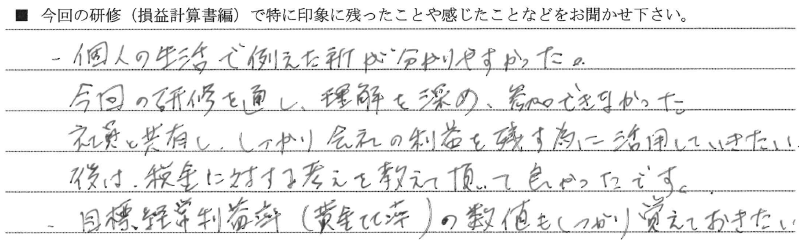 ■ 今回の研修（損益計算書編）で特に印象に残ったことや感じたことなどをお聞かせ下さい。
- 個人の生活で例えた所が分かりやすかった。
今回の研修を通し、理解を深め、参加できなかった
社員と共有し、しっかり会社の利益を残す為に活用していきたい
後は、税金に対する考えを教えて頂いて良かったです。
- 目標経常利益率（黄金比率）の数値もしっかり覚えておきたい